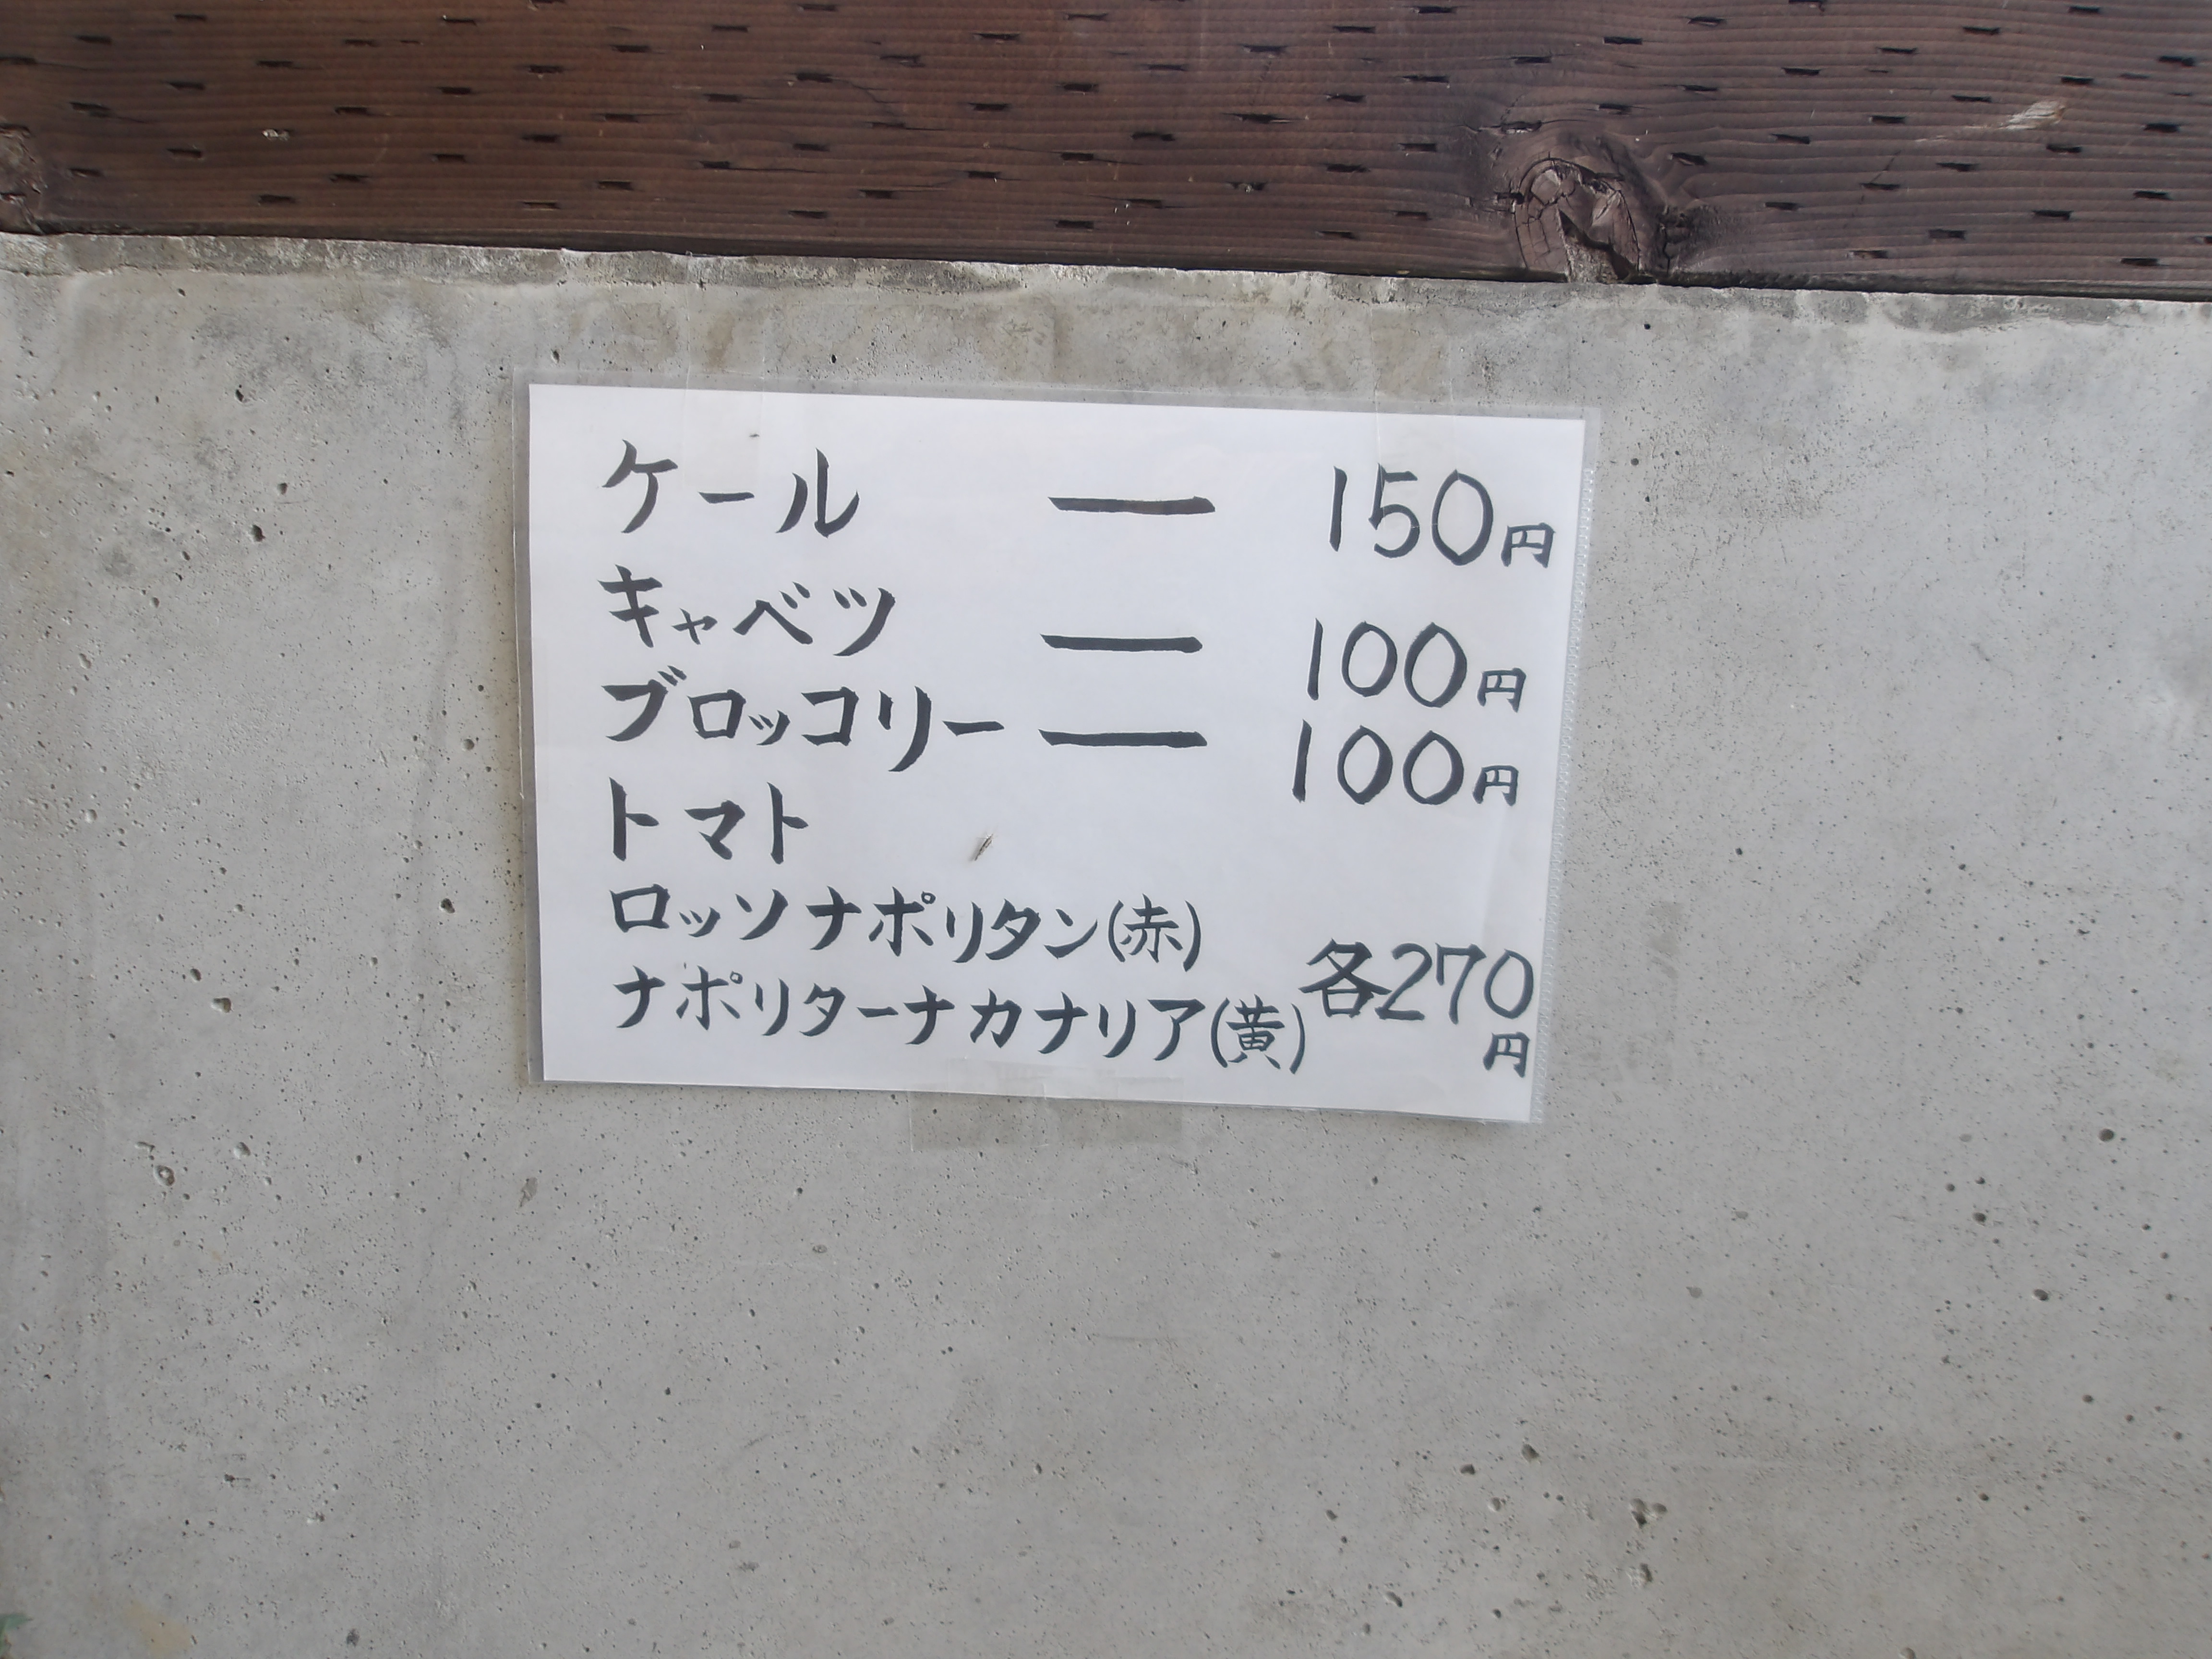 ケール ― 150円
キャベツ ― 100円
ブロッコリー ― 100円
トマト
ロッソナポリタン(赤)
ナポリターナカナリア(黄) 各270円